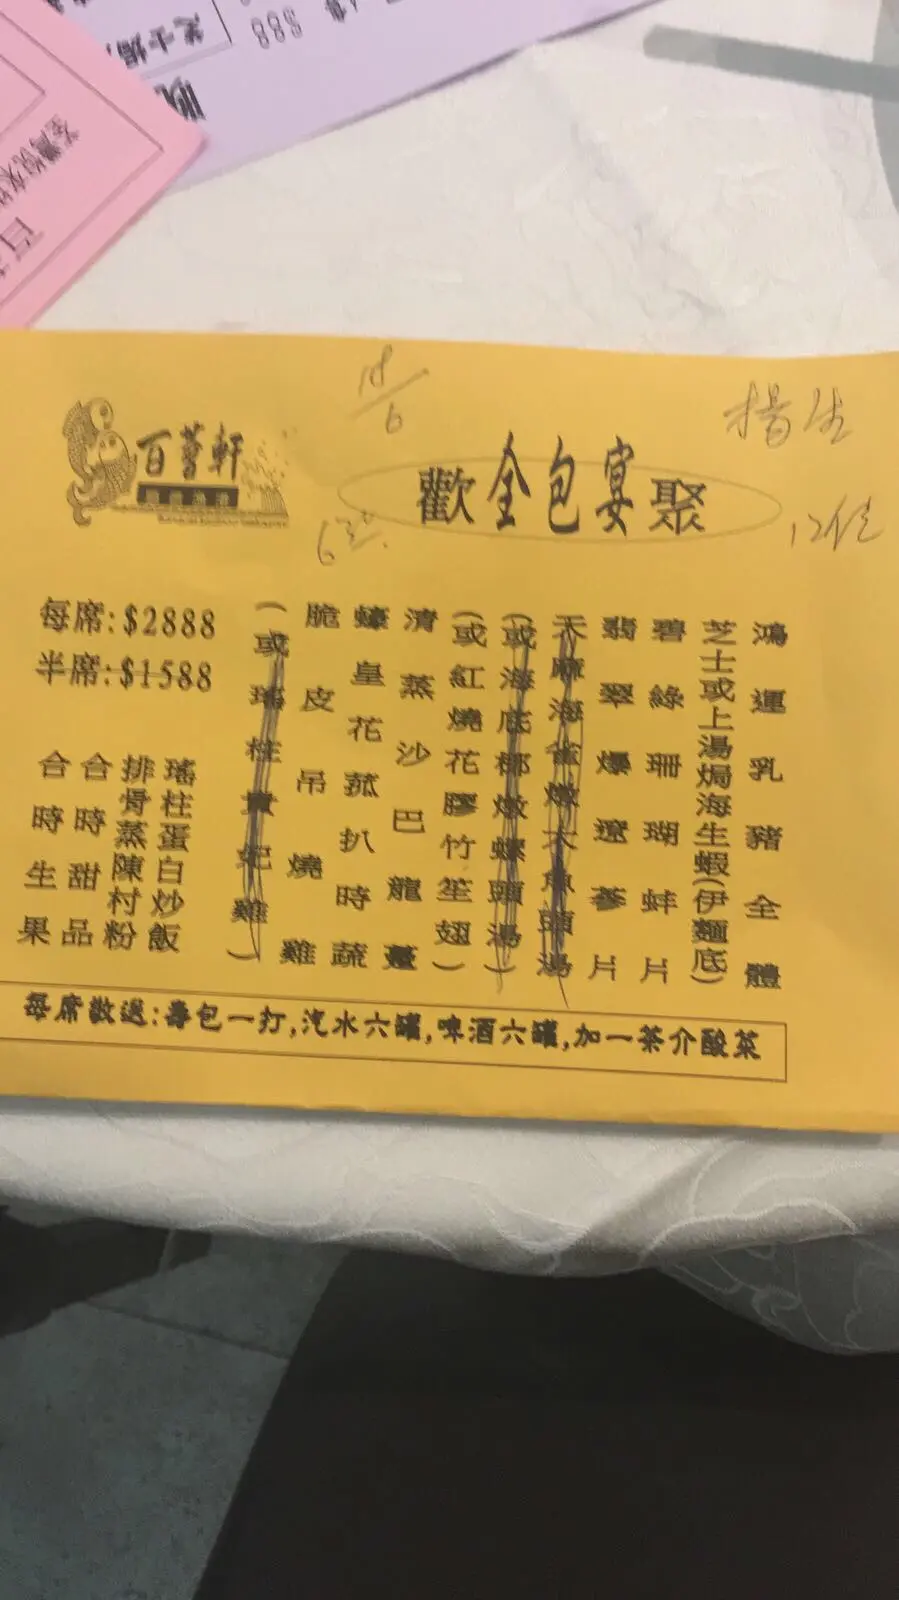 芝士焗
888
晚
百
18/6
楊生
百薈軒
歡全包宴聚
6:30
12位
鴻運乳豬全體
芝士或上湯焗海生蝦(伊麵底)
碧綠珊瑚蚌片
翡翠爆遼蔘片
天麻海雀燉大魚頭湯
(或海底椰燉螺頭湯)
(或紅燒花膠竹笙翅)
清蒸沙巴龍躉
蠔皇花菰扒時蔬
脆皮吊燒雞
(或瑤柱貴妃雞)
每席:$2888
半席:$1588
瑤柱蛋白炒飯
排骨蒸陳村粉
合時甜品
合時生果
每席敬送:壽包一打,汽水六罐,啤酒六罐,加一茶介酸菜